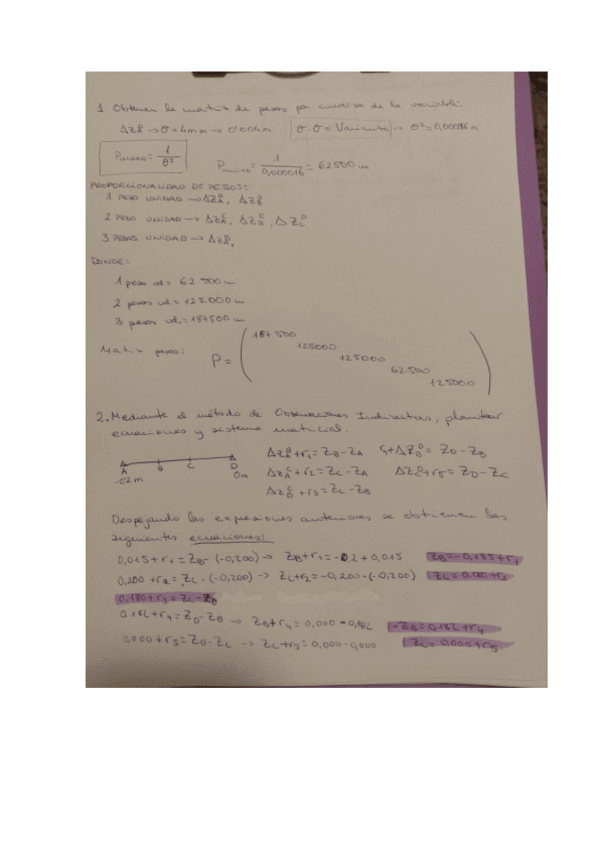 1. Obtener la matriz de pesos por inversa de la variable:
ΔZ → σ = 4mm → 0'004m σ·σ = Varianza → σ² = 0,000016m
= 1/σ² = 1/0,000016 = 62500 m
PROPORCIONALIDAD DE PESOS:
1 PESO UNIDAD →
2 PESO UNIDAD → ΔZ_A^C, ΔZ_B^C, ΔZ_C^D
3 PESOS UNIDAD →
DONDE:
1 peso ud = 62.500 m
2 pesos ud. = 125.000 m
3 pesos ud. = 187500 m
Matriz pesos: P =
187.500
125000
125000
62.500
125000
2. Mediante el método de Observaciones Indirectas, plantear
ecuaciones y sistema matricial.
ΔZ_A^B + r₁ = Z_B - Z_A r₄ + ΔZ_B^D = Z_D - Z_B
ΔZ_A^C + r₂ = Z_C - Z_A ΔZ_C^D + r₅ = Z_D - Z_C
ΔZ_B^C + r₃ = Z_C - Z_B
A B C D
-0,2 m 0m
Despejando las expresiones anteriores se obtienen las
siguientes ecuaciones:
0,015 + r₁ = Z_B - (-0,200) → Z_B + r₁ = -0,2 + 0,015 Z_B = -0,185 + r₁
0,200 + r₂ = Z_C - (-0,200) → Z_C + r₂ = -0,200 - (-0,200) Z_C = 0,000 + r₂
0,180 + r₃ = Z_C - Z_B
0,182 + r₄ = Z_D - Z_B → Z_B + r₄ = 0,000 - 0,182 -Z_B = 0,182 + r₄
0,000 + r₅ = Z_D - Z_C → Z_C + r₅ = 0,000 - 0,000 Z_C = 0,000 + r₅